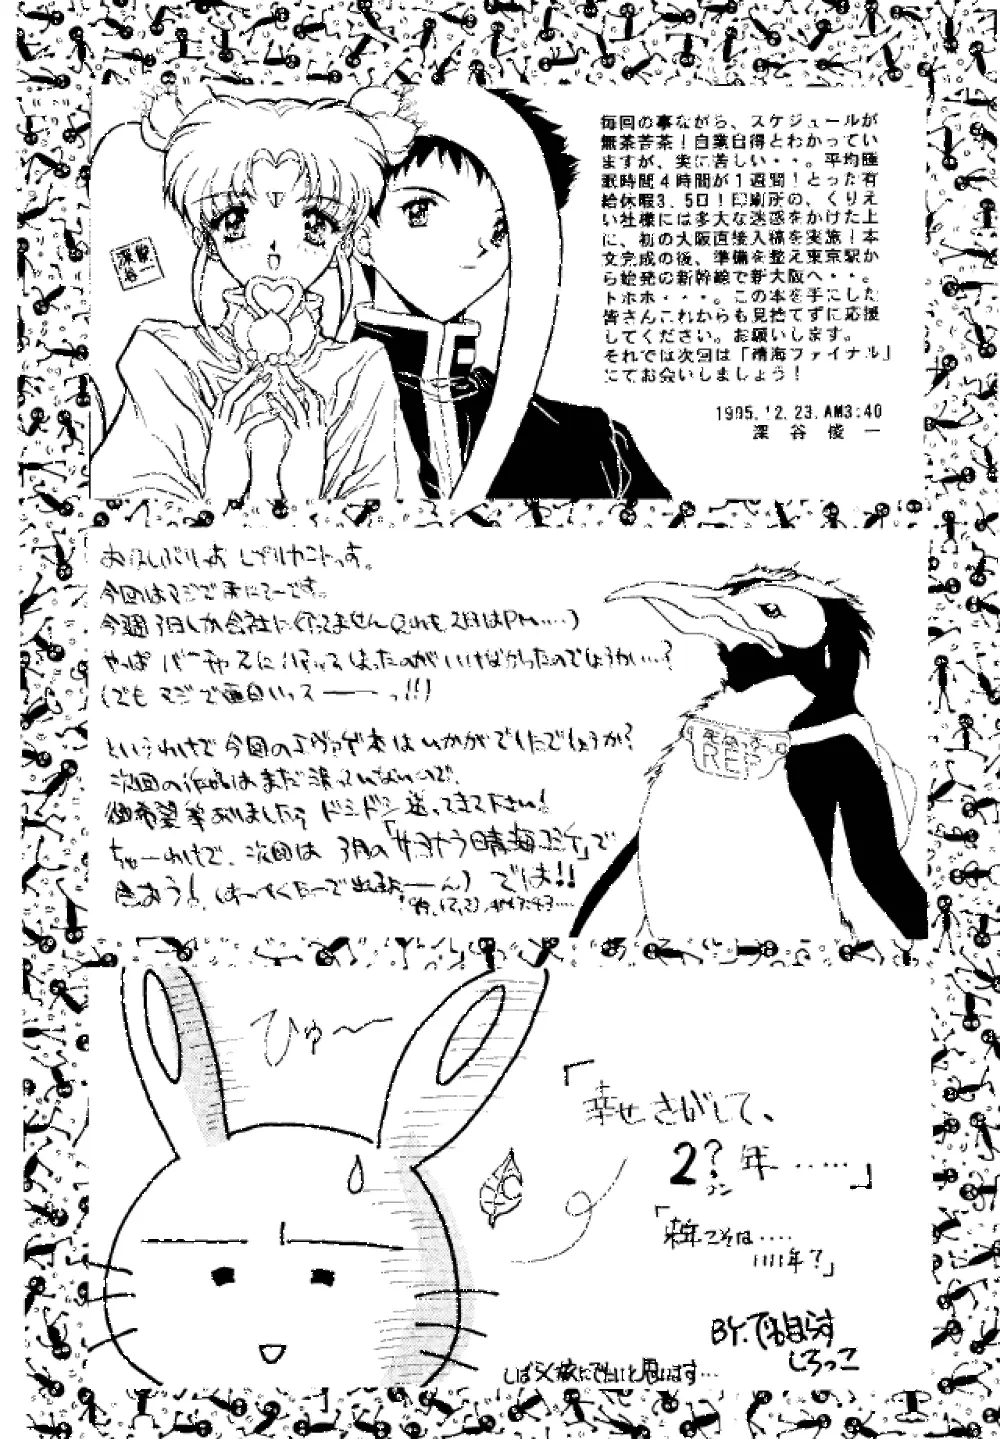 毎回の事ながら、スケジュールが
無茶苦茶！自業自得とわかってい
ますが、実に苦しい・・。平均睡
眠時間４時間が１週間！とった有
給休暇3.5日！印刷所の、くりえ
い社様には多大な迷惑をかけた上
に、初の大阪直接入稿を実施！本
文完成の後、準備を整え東京駅か
ら始発の新幹線で新大阪へ・・。
トホホ・・・。この本を手にした
皆さんこれからも見捨てずに応援
してください。お願いします。
それでは次回は「晴海ファイナル」
にてお会いしましょう！
1995.12.23.AM3:40
深谷俊一
深谷俊一
おひさしぶりっす レプリカントっす。
今回はマジで
今週3日しか会社に行ってません(それも2日はPM……)
やっぱ バーチャ2にハマってしまったのがいけなかったのでしょうか…?
(でも マジで面白いっスーーっ!!)
というわけで今回のエヴァ本はいかがでしたでしょうか?
次回の作品はまだ決っていないので、
御希望等ありましたらドシドシ送ってきて下さい!
ちゅーわけで、次回は 3月の「サヨナラ晴海コミケ」で
会おう!
では!!
'95.12.23.AM3:43…
RE
ひゅ〜
「幸せさがして、
2?年……」
「来年こそは……
年?」
BY.でほらす
しろっこ
しばらく旅にでたいと思います…